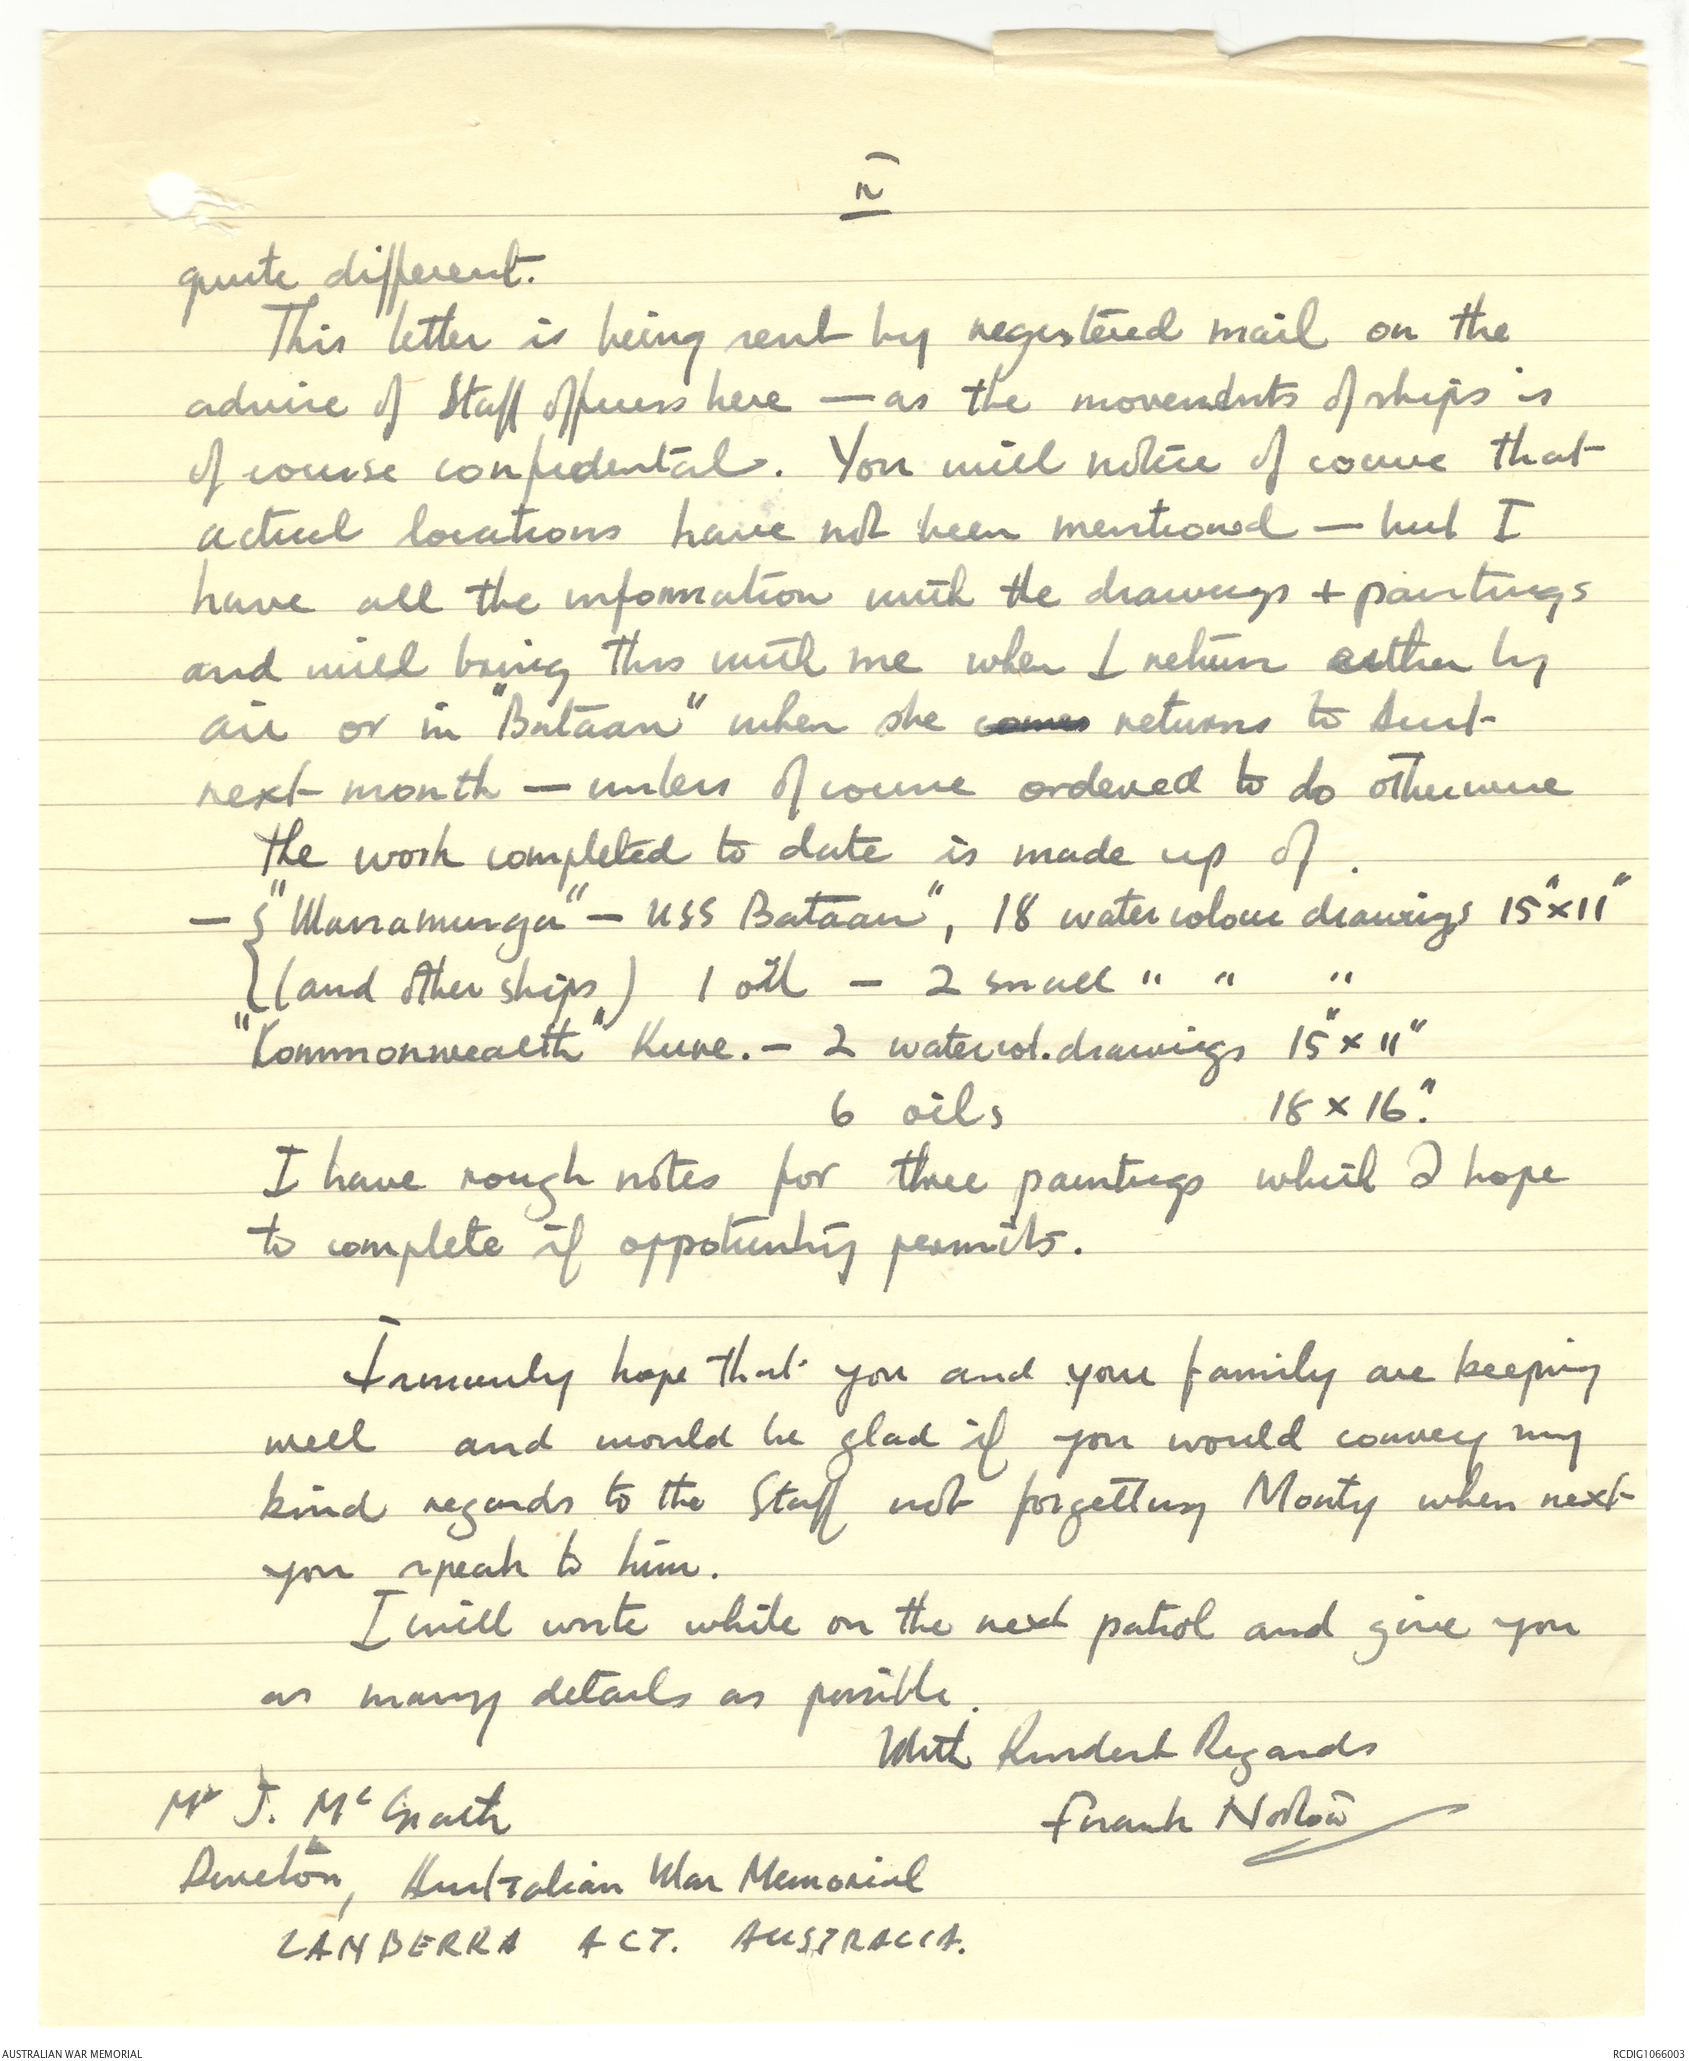 IV
quite different.
This letter is being sent by registered mail on the
advise of Staff officers here — as the movements of ships is
of course confidental. You will notice of course that
actual locations have not been mentioned — but I
have all the information with the drawings + paintings
and will bring this with me when I return either by
air or in "Bataan" when she comes returns to Aust
next month — unless of course ordered to do otherwise
the work completed to date is made up of.
— { "Warramunga" — USS Bataan", 18 watercolour drawings 15"x11"
{ (and other ships) 1 oil — 2 small " " "
"Commonwealth" Kure. — 2 watercol. drawings 15"x11"
6 oils 18 x 16"
I have rough notes for three paintings which I hope
to complete if oppotunity permits.
I sincerely hope that you and your family are keeping
well and would be glad if you would convey my
kind regards to the Staff not forgetting Monty when next
you speak to him.
I will write while on the next patrol and give you
as many details as possible.
With Kindest Regards
Frank Norton
Mr J. McGrath
Director, Australian War Memorial
CANBERRA ACT. AUSTRALIA.
AUSTRALIAN WAR MEMORIAL
RCDIG1066003